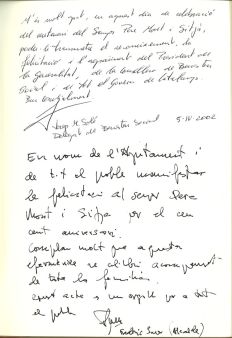 M'és molt grat, en aquest dia de celebració
del centenari del Senyor Pere Mont i Sitjà,
poder-li transmetre el reconeixement, la
felicitació i l'agraïment del President de
la Generalitat, de la Consellera de Benestar
Social i de tot el Govern de Catalunya.
Ben cordialment
Josep M. Solé
Delegat de Benestar Social
5-IV-2002
En nom de l'Ajuntament i
de tot el poble manifestar
la felicitació al senyor Pere
Mont i Sitjà per el seu
cent aniversari.
molt que aquesta
efemèride se celebri acompanyat
de tota la família.
acte a un orgull per a tot
el poble
(Alcalde)